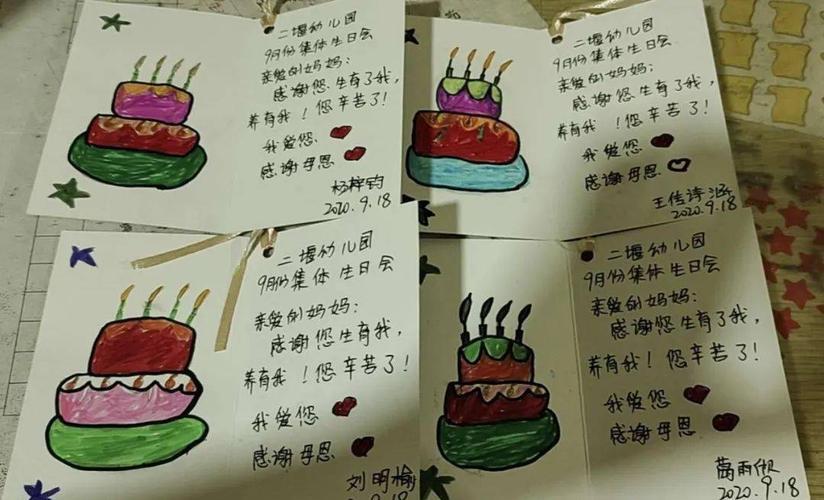 二堰幼儿园
9月份集体生日会
亲爱的妈妈:
感谢您生育了我,
养育我!您辛苦了!
我爱您
感谢母恩
杨梓钧
2020.9.18
二堰幼儿园
9月份集体生日会
亲爱的妈妈:
感谢您生育了我,
养育我!您辛苦了!
我爱您
感谢母恩
王佳诗涵
2020.9.18
二堰幼儿园
9月份集体生日会
亲爱的妈妈:
感谢您生育了我,
养育我!您辛苦了!
我爱您
感谢母恩
刘明榆
9.18
二堰幼儿园
9月份集体生日会
亲爱的妈妈:
感谢您生育了我,
养育我!您辛苦了!
我爱您
感谢母恩
雨
2020.9.18